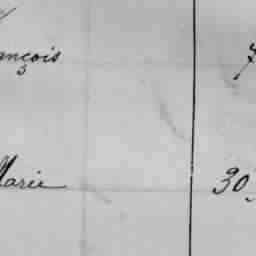 ançois 7
Marie 30